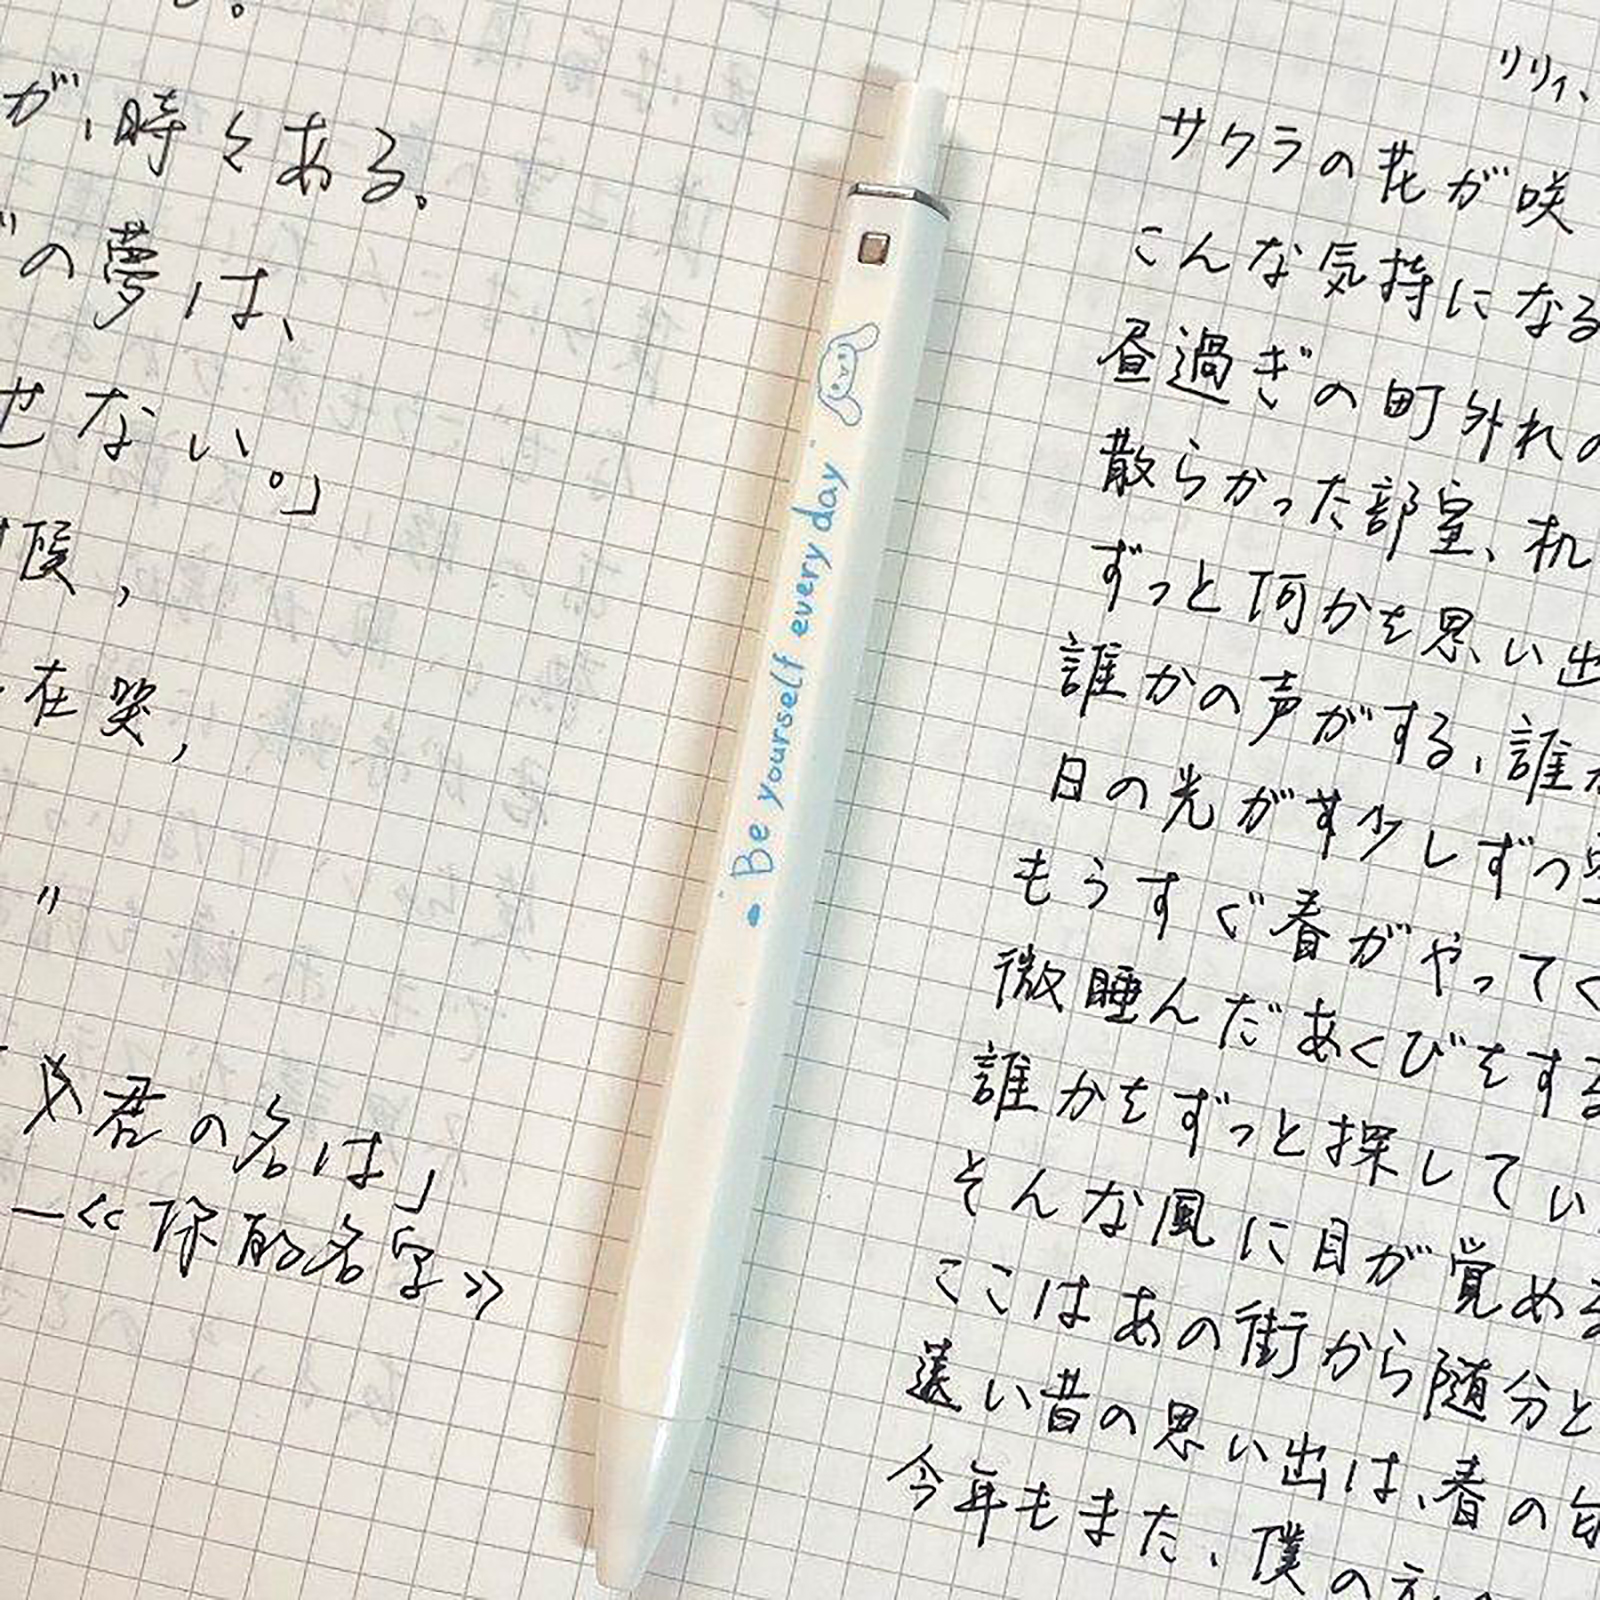 が、時々ある。
の夢は、
せない。」
候，
在笑，
"
君の名は」
—《你的名字》
Be yourself every day
リリィ、
サクラの花が咲
こんな気持になる
昼過ぎの町外れの
散らかった部室、机
ずっと何かを思い出
誰かの声がする、誰か
日の光が少しずつ
もうすぐ春がやってく
微睡んだあくびをする
誰かをずっと探してい
そんな風に目が覚める
ここはあの街から随分と
遠い昔の思い出は、春の匂
今年もまた、僕の